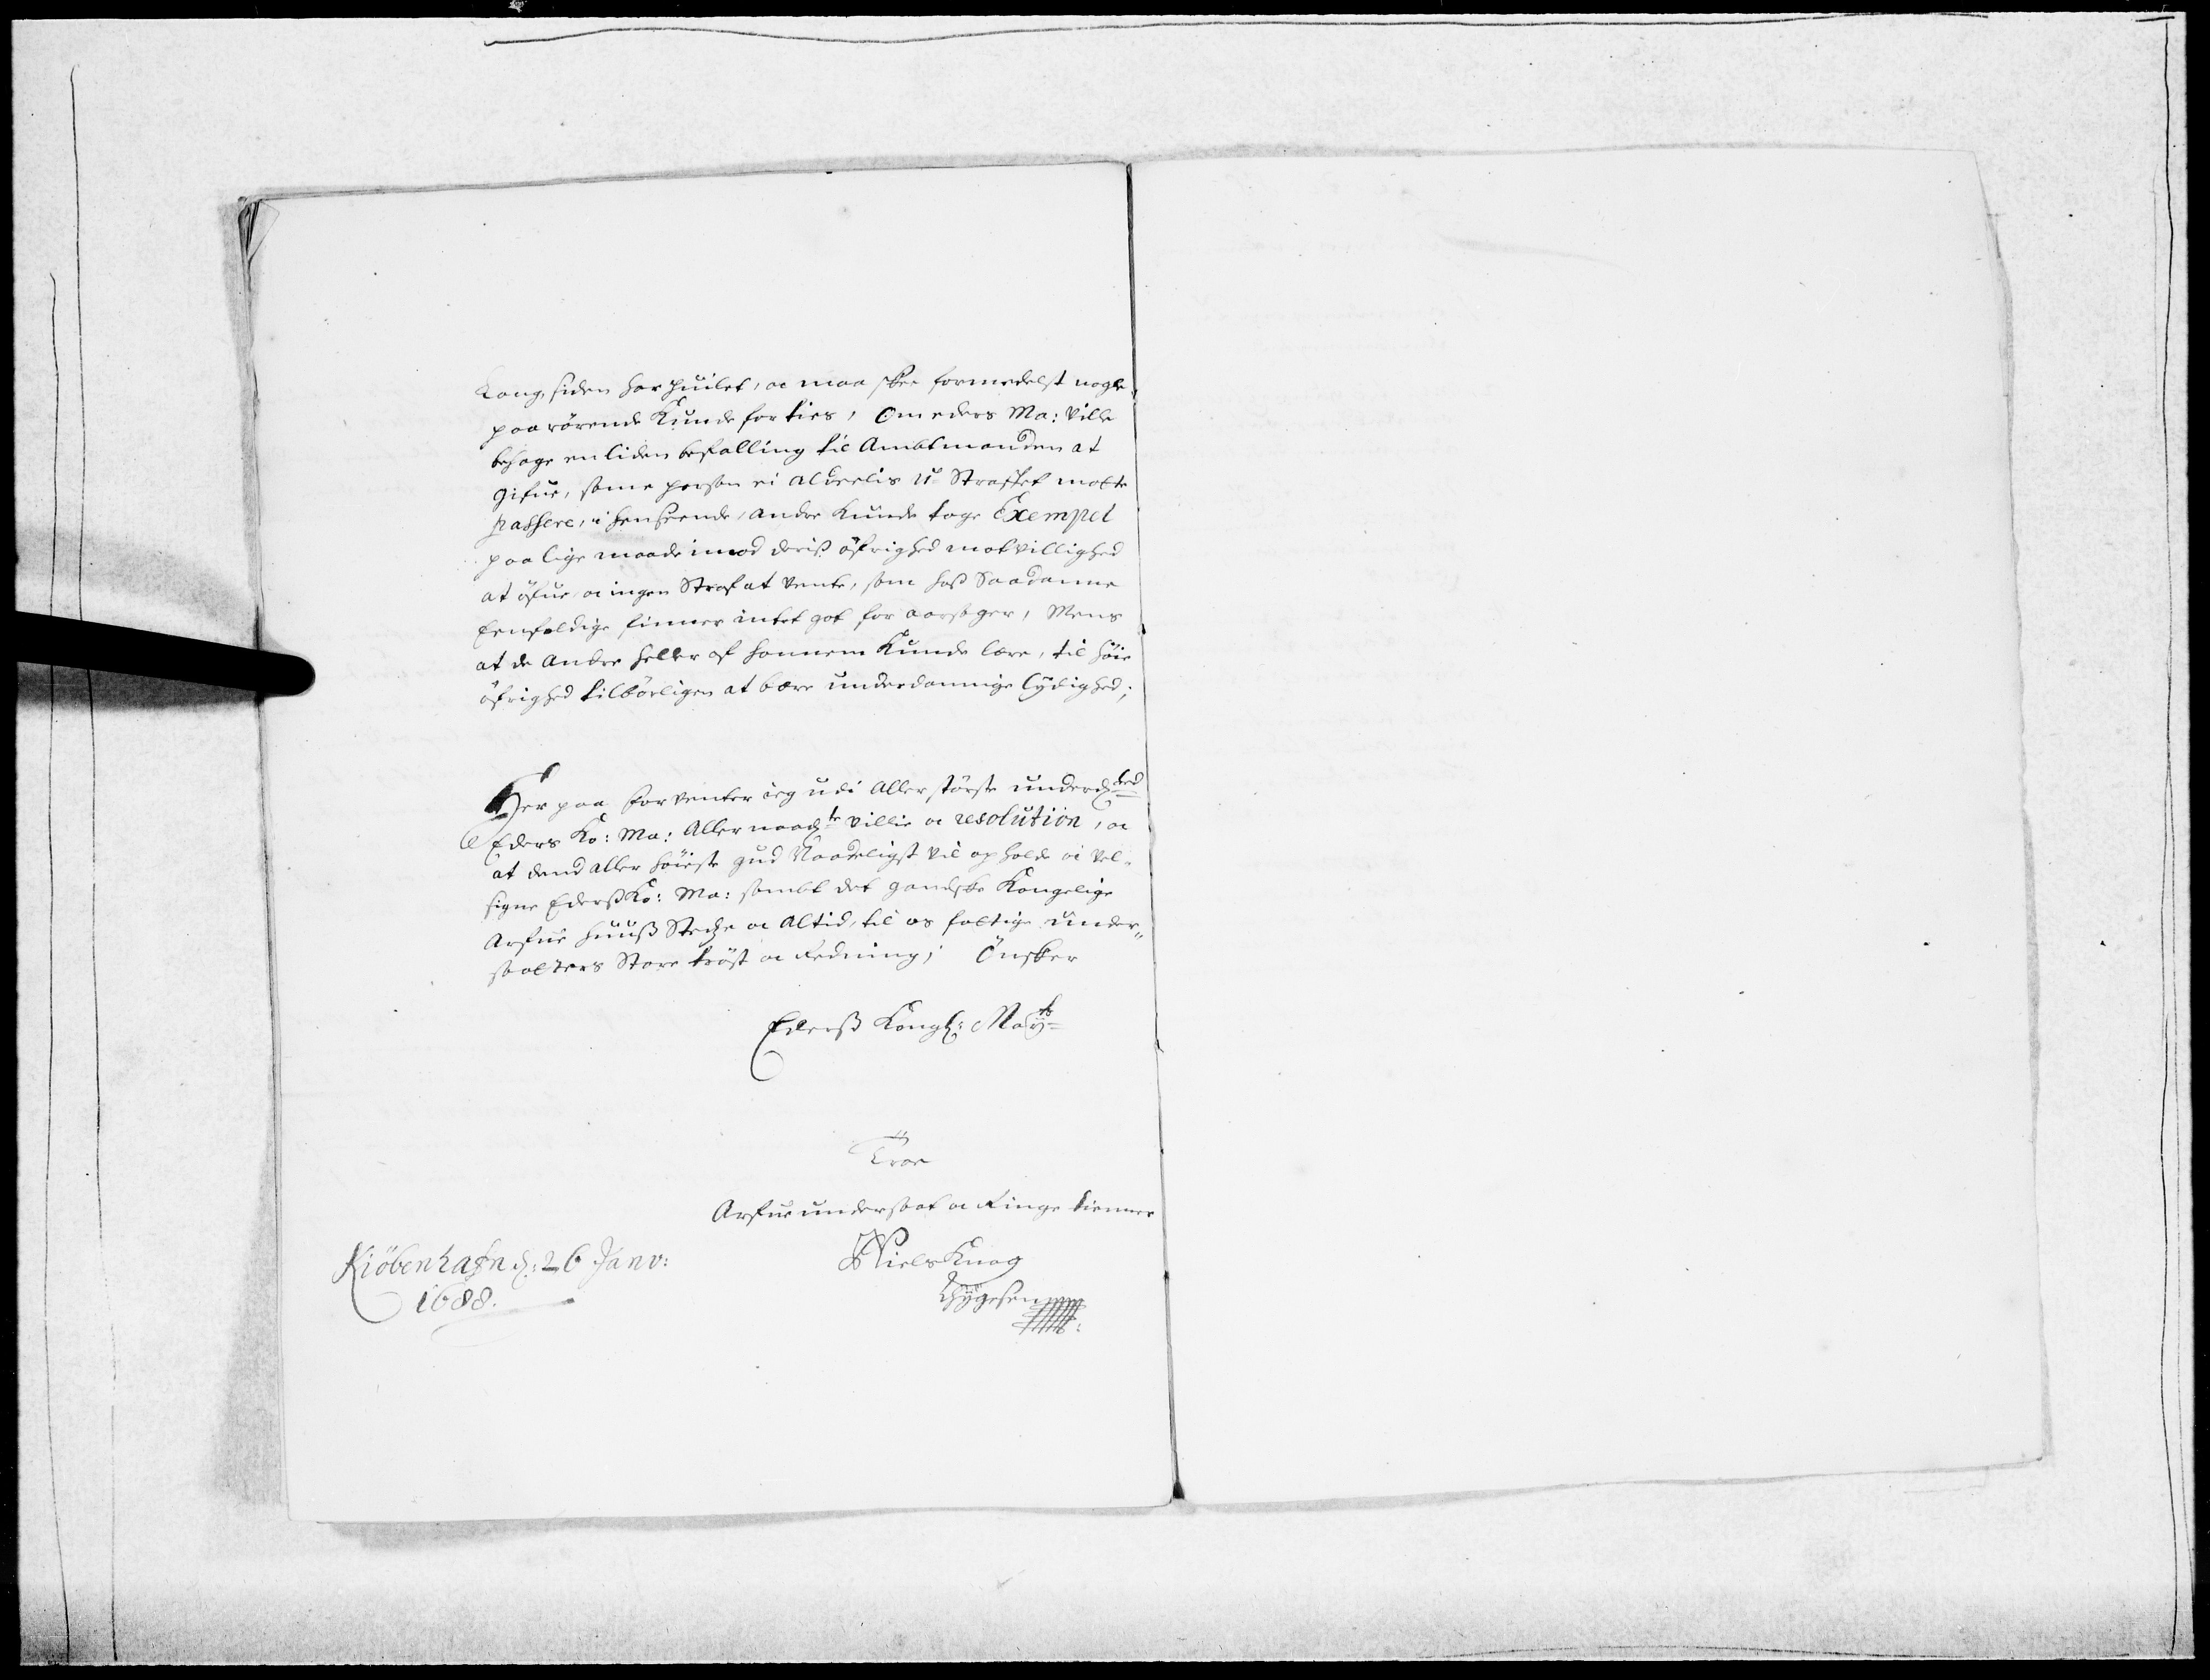 Lang siden har huilet, oc maa skee formedelst nogle
paarörende Kunde forties, Om eders Ma: ville
behage en liden befalling til Ambtmanden at
gifue, same person ei alvorlis u Straffet motte
passere, i henseende, andre Kunde tage Exempel
paa lige maade imod deris öfrighed motvillighed
at öfue, oc ingen Straf at vente, som hos Saadanne
Eenfoldige finner intet got foraarsager, Mens
at de andre heller af hannem Kunde lære, til höie
öfrighed tilbörligen at bære underdannige lydighed;
Her paa forventer ieg udi Aller störste underd:hed
Eders Ko: Ma: Aller naad:te villie oc resolution, oc
at dend aller höieste gud Naadeligst vil opholde oc vel-
signe Ederss Ko: Ma: sambt det gandske Kongelige
Arfue huuss Stedze oc Altid, til os fattige under-
saatters Store tröst oc Redning; Önsker
Ederss Kongl: May:ts
Troe
Arfue undersaat oc Ringe tienner
Niels Knag
Thygesen
Kiöbenhafn d: 26 Janv:
1688.